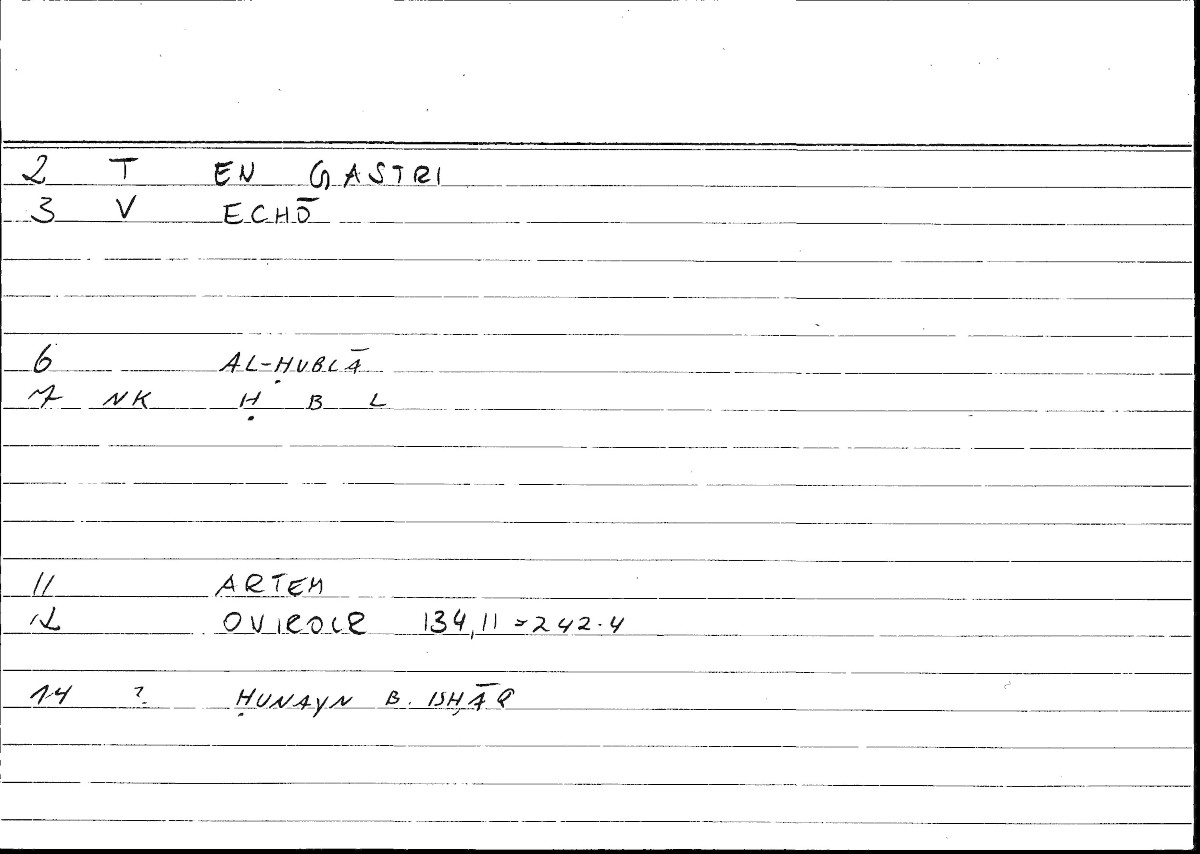 2 T EN GASTRI
3 V ECHŌ
6 AL-ḤUBLĀ
7 NK Ḥ B L
11 ARTEM
12 OVIROCR 134,11=242.4
14 ? ḤUNAYN B. ISḤĀQ